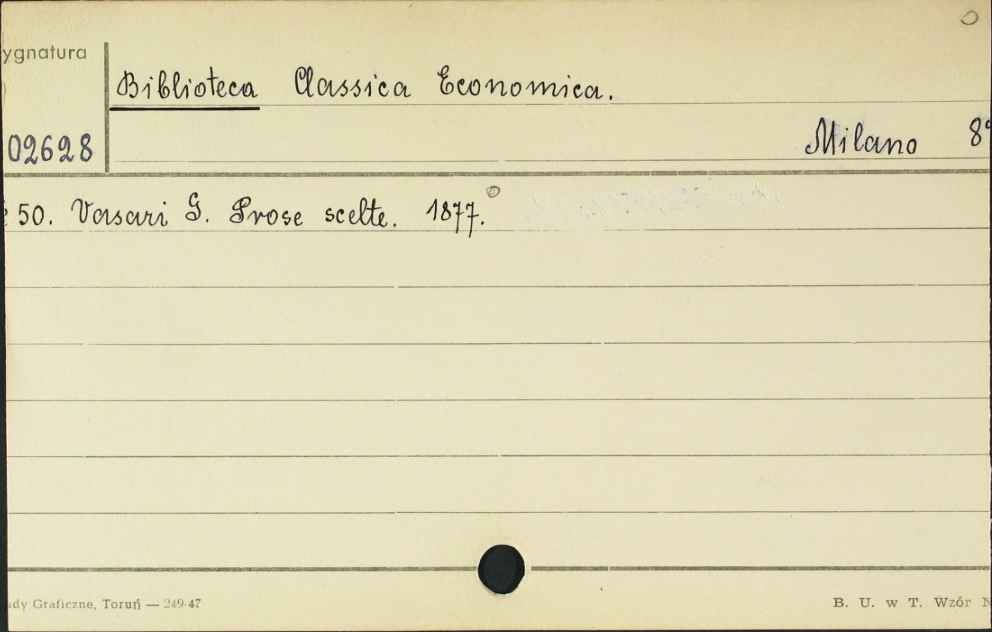 ygnatura
Biblioteca Classica Economica.
02628
Milano 8°
50. Vasari G. Prose scelte. 1877.
ady Graficzne, Toruń — 249-47
B. U. w T. Wzór N